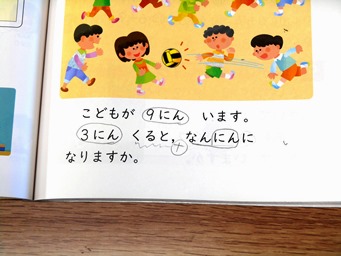 こどもが 9にん います。
3にん くると, なんにんに
なりますか。
+